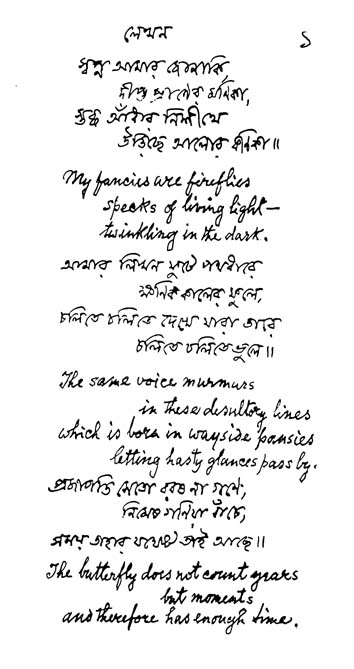 লেখন
১
স্বপ্ন আমার জোনাকি
দীপ্ত প্রাণের মণিকা,
স্তব্ধ আঁধার নিশীথে
উড়িছে আলোর কণিকা॥
My fancies are fireflies
specks of living light—
twinkling in the dark.
আমার লিখন ফুটে পথধারে
ক্ষণিক কালের ফুলে,
চলিতে চলিতে দেখে যারা তারে
চলিতে চলিতে ভুলে॥
The same voice murmurs
in these desultory lines
which is born in wayside pansies
letting hasty glances pass by.
প্রজাপতি সেতো বরষ না গণে,
নিমেষ গণিয়া বাঁচে,
সময় তাহার যথেষ্ট তাই আছে॥
The butterfly does not count years
but moments
and therefore has enough time.